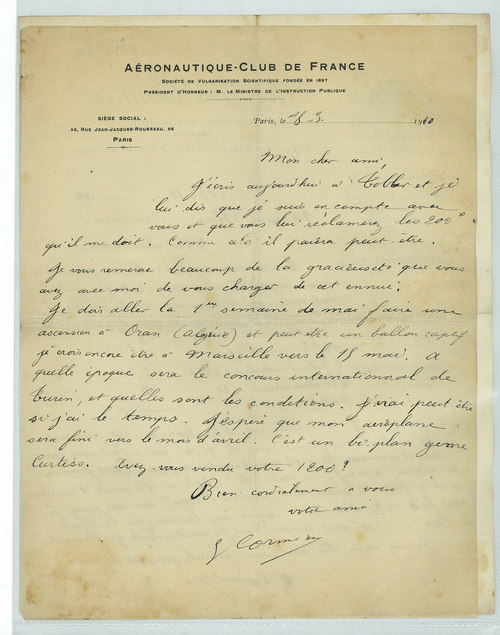 AÉRONAUTIQUE-CLUB DE FRANCE
SOCIÉTÉ DE VULGARISATION SCIENTIFIQUE FONDÉE EN 1897
PRÉSIDENT D'HONNEUR : M. LE MINISTRE DE L'INSTRUCTION PUBLIQUE
SIÈGE SOCIAL :
58, RUE JEAN-JACQUES-ROUSSEAU, 58
PARIS
Paris, le 18 3 1910
Mon cher ami,
J'écris aujourd'hui à et je
lui dis que je suis en compte avec
vous et que vous lui réclamerez les 200 f
qu'il me doit. Comme il paiera peut être.
Je vous remercie beaucoup de la gracieuseté que vous
avez avec moi de vous charger de cet ennui.
Je dois aller la 1ère semaine de mai faire une
ascension à Oran (Algérie) et peut être un ballon captif
je crois encore être à Marseille vers le 15 mai. A
quelle époque sera le concours international de
Turin, et quelles sont les conditions. J'irai peut-être
si j'ai le temps. J'espère que mon aéroplane
sera fini vers le mois d'avril. C'est un bi-plan genre
Curtiss. Avez-vous vendu votre 1200?
Bien cordialement a vous
votre ami